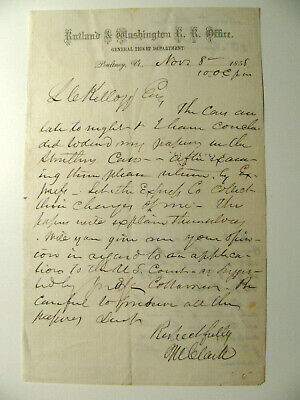 Rutland & Washington R. R. Office.
GENERAL TICKET DEPARTMENT
Poultney, Vt. Nov 8 1858
10.00 pm
L C Kellogg Esq
The Cars are
late to night & I have conclu
ded to send my papers in the
Cars — After exam
ing them please return by Ex
press — let the Express Co collect
their charges of me — the
papers will explain themselves
Will you give me your opin
ion in regard to an applica
tion to the U.S. Court — as sugges
ted by Collamer — Be
careful to preserve all the
papers sent
Respectfully
M Clark